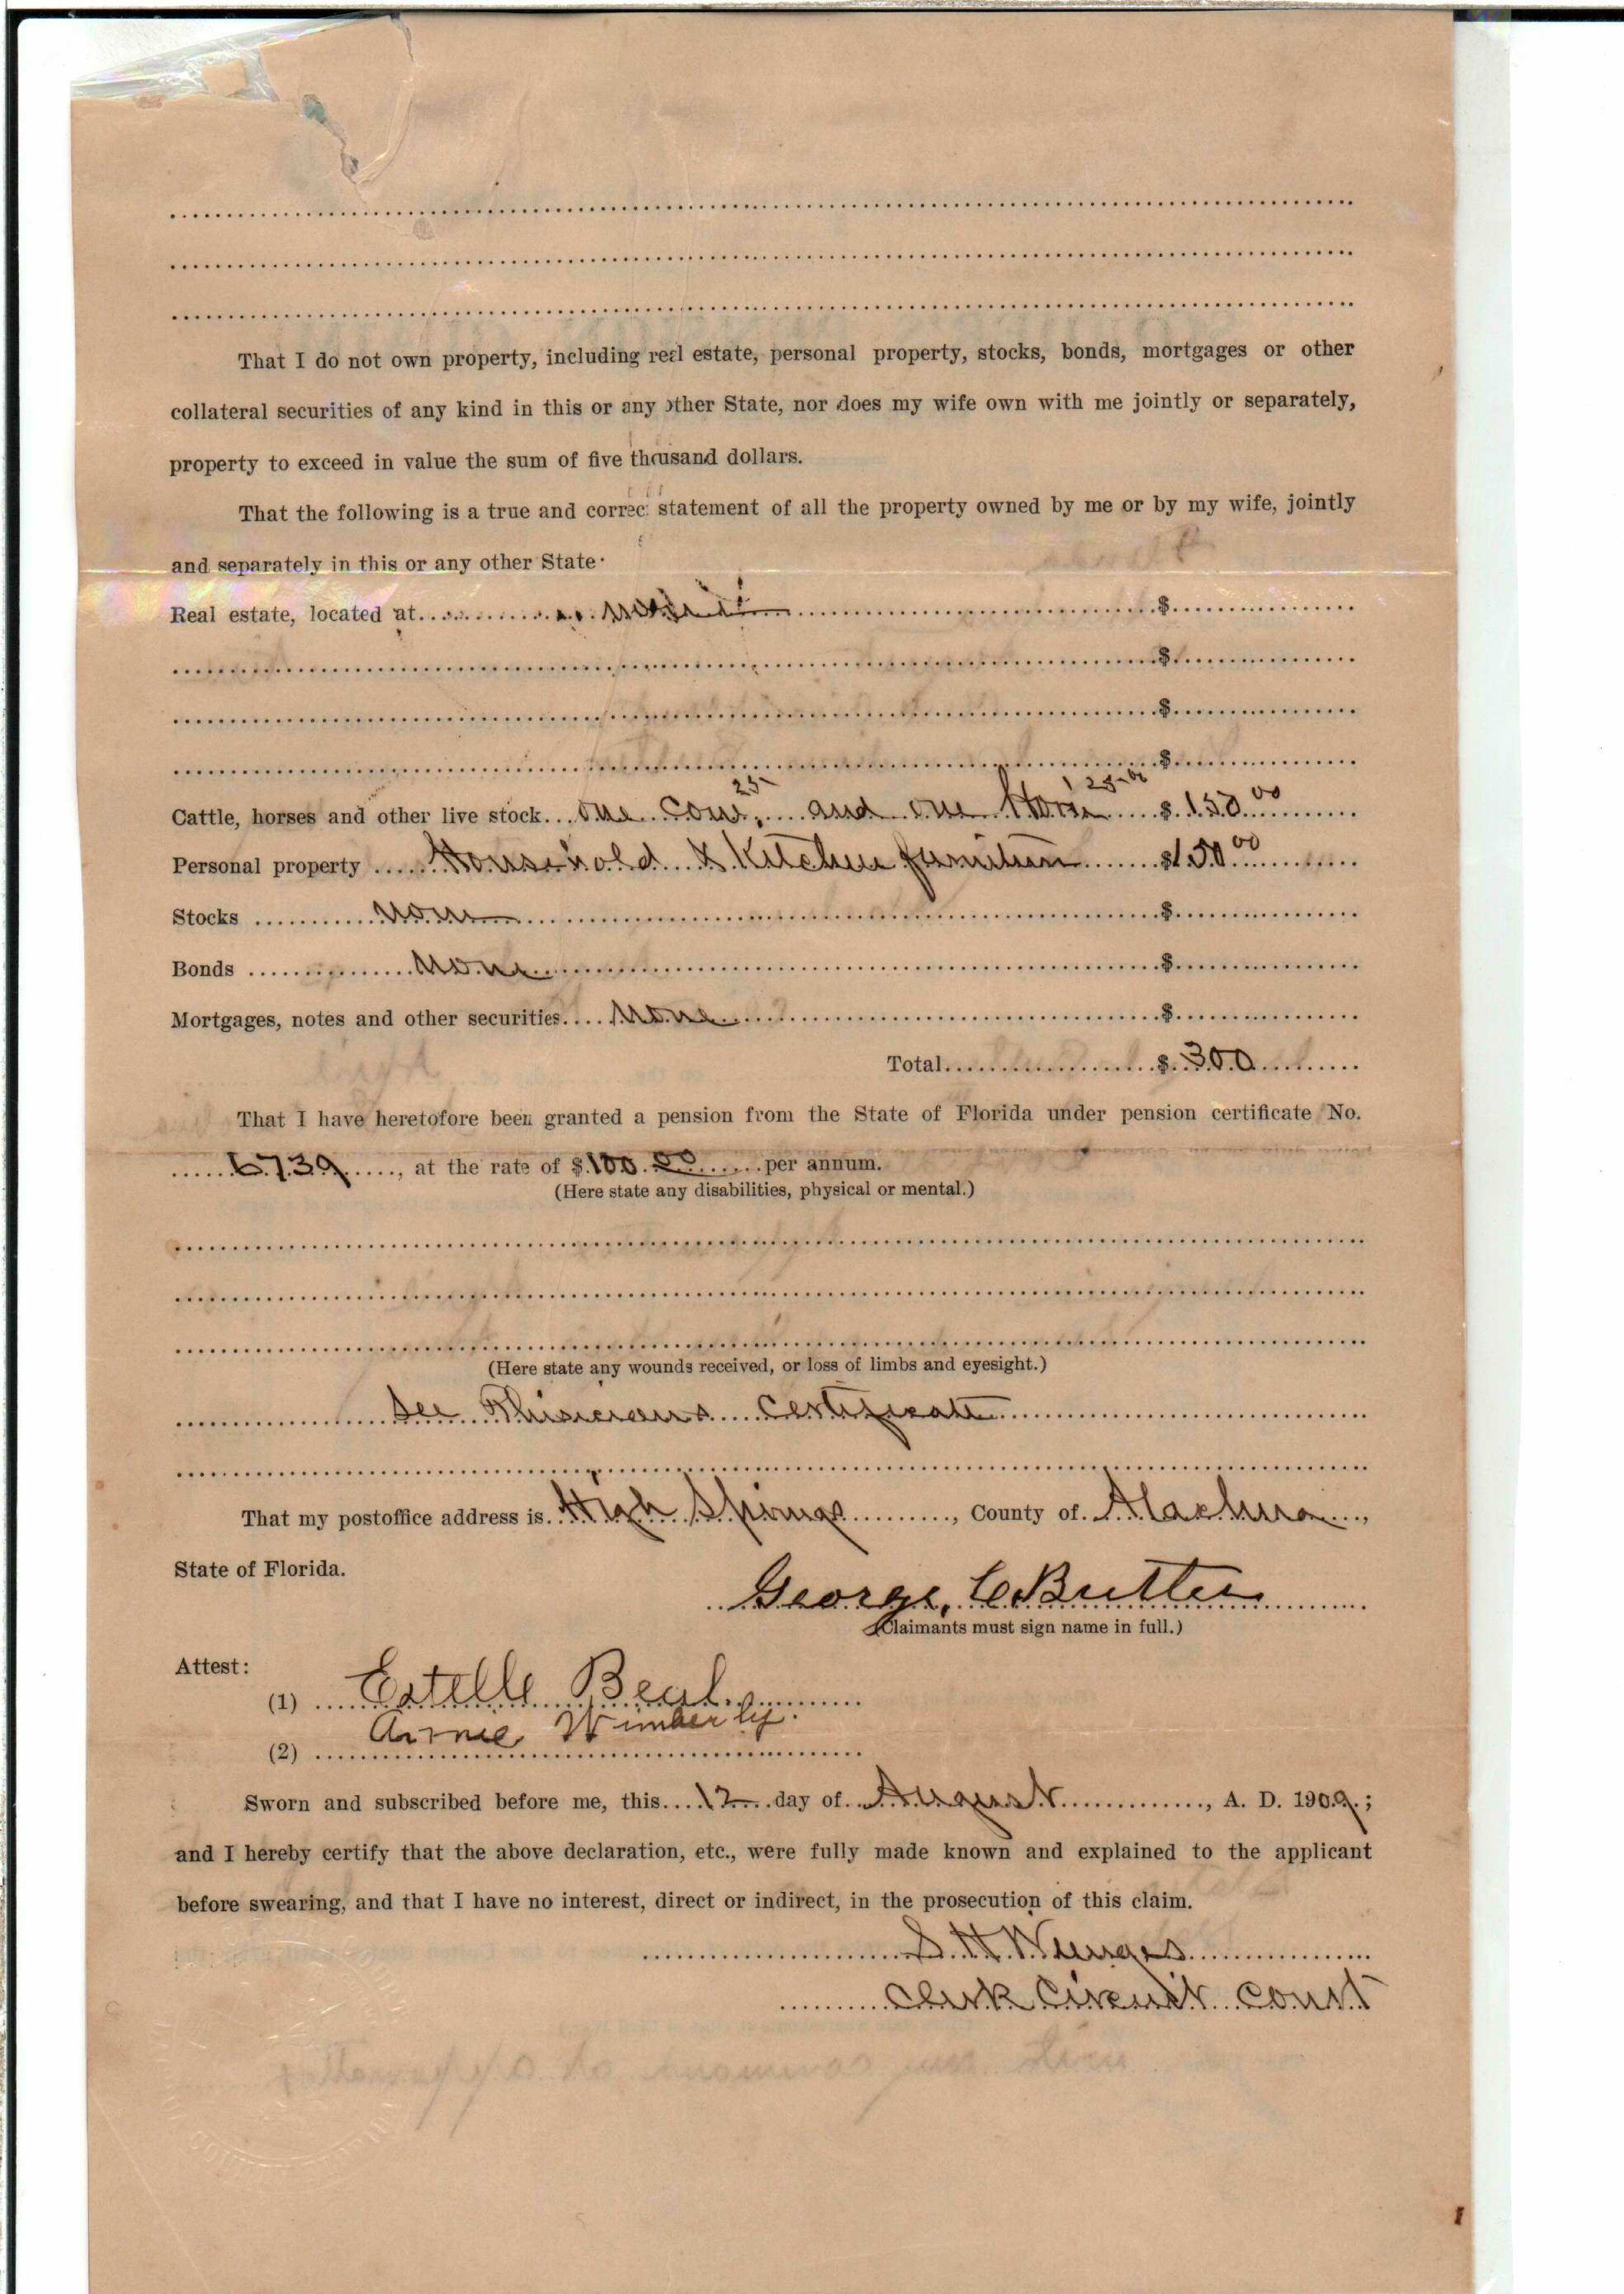 That I do not own property, including real estate, personal property, stocks, bonds, mortgages or other
collateral securities of any kind in this or any other State, nor does my wife own with me jointly or separately,
property to exceed in value the sum of five thousand dollars.
That the following is a true and correct statement of all the property owned by me or by my wife, jointly
and separately in this or any other State:
Real estate, located at $
$
$
$
25 125.00
Cattle, horses and other live stock one Cow, and one Horse $ 150 00
Personal property Household & Kitchen furniture $150 00
Stocks None $
Bonds None $
Mortgages, notes and other securities None $
Total $ 300
That I have heretofore been granted a pension from the State of Florida under pension certificate No.
6739, at the rate of $100.00 per annum.
(Here state any disabilities, physical or mental.)
(Here state any wounds received, or loss of limbs and eyesight.)
See Phisicians Certificate
That my postoffice address is High Springs, County of Alachua,
State of Florida.
George, C Butler
(Claimants must sign name in full.)
Attest:
(1) Estelle Beal
Annie Wimberly.
(2)
Sworn and subscribed before me, this 12 day of August, A. D. 1909;
and I hereby certify that the above declaration, etc., were fully made known and explained to the applicant
before swearing, and that I have no interest, direct or indirect, in the prosecution of this claim.
S H Wienges
Clerk Circuit Court